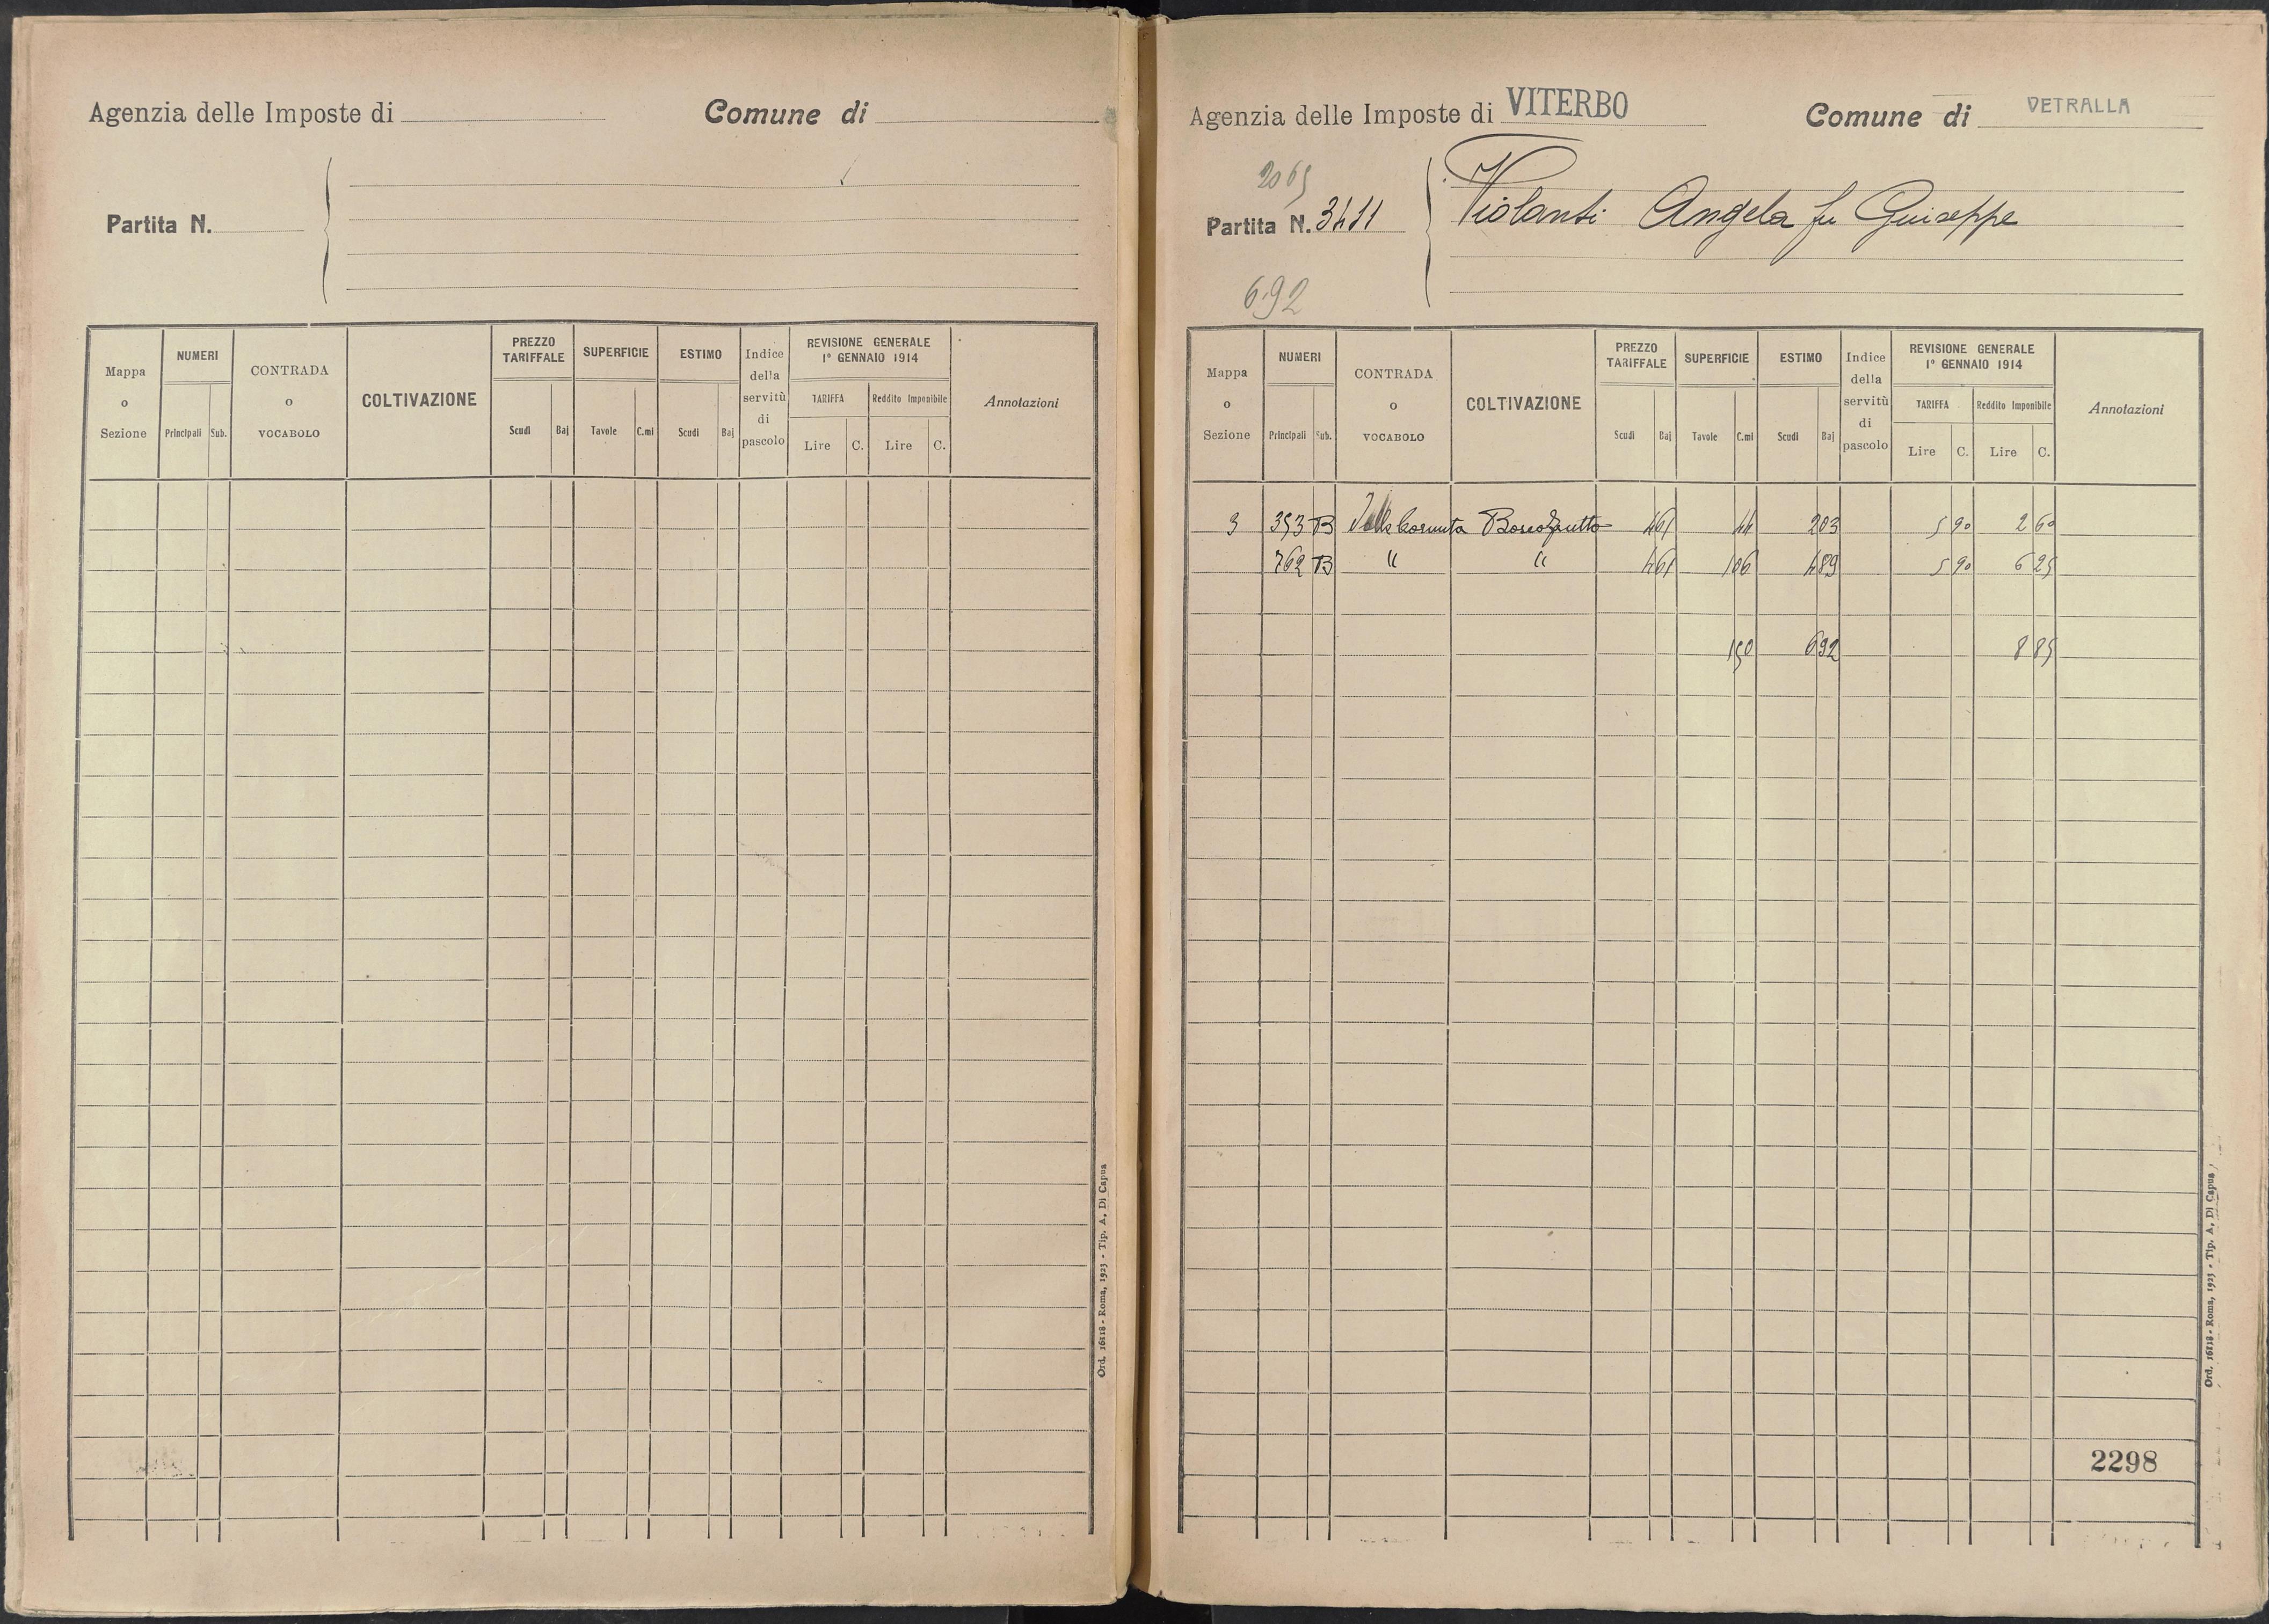 Agenzia delle Imposte di
Comune di
Partita N.
Mappa o Sezione
NUMERI
Principali
Sub.
CONTRADA o VOCABOLO
COLTIVAZIONE
PREZZO TARIFFALE
Scudi
Baj
SUPERFICIE
Tavole
C.mi
ESTIMO
Scudi
Baj
Indice della servitù di pascolo
REVISIONE GENERALE
1° GENNAIO 1914
TARIFFA
Reddito Imponibile
Lire
C.
Lire
C.
Annotazioni
Ord. 16118 - Roma, 1923 - Tip. A. Di Capua
Agenzia delle Imposte di VITERBO
Comune di VETRALLA
2065
Partita N. 3411
Violanti Angela fu Giuseppe
692
Mappa o Sezione
NUMERI
Principali
Sub.
CONTRADA o VOCABOLO
COLTIVAZIONE
PREZZO TARIFFALE
Scudi
Baj
SUPERFICIE
Tavole
C.mi
ESTIMO
Scudi
Baj
Indice della servitù di pascolo
REVISIONE GENERALE
1° GENNAIO 1914
TARIFFA
Reddito Imponibile
Lire
C.
Lire
C.
Annotazioni
3 353 B Valle Cornuta Bosco 461 44 203 5 90 2 60
762 B " " 461 106 489 5 90 6 25
150 692 8 85
2298
Ord. 16118 - Roma, 1923 - Tip. A. Di Capua